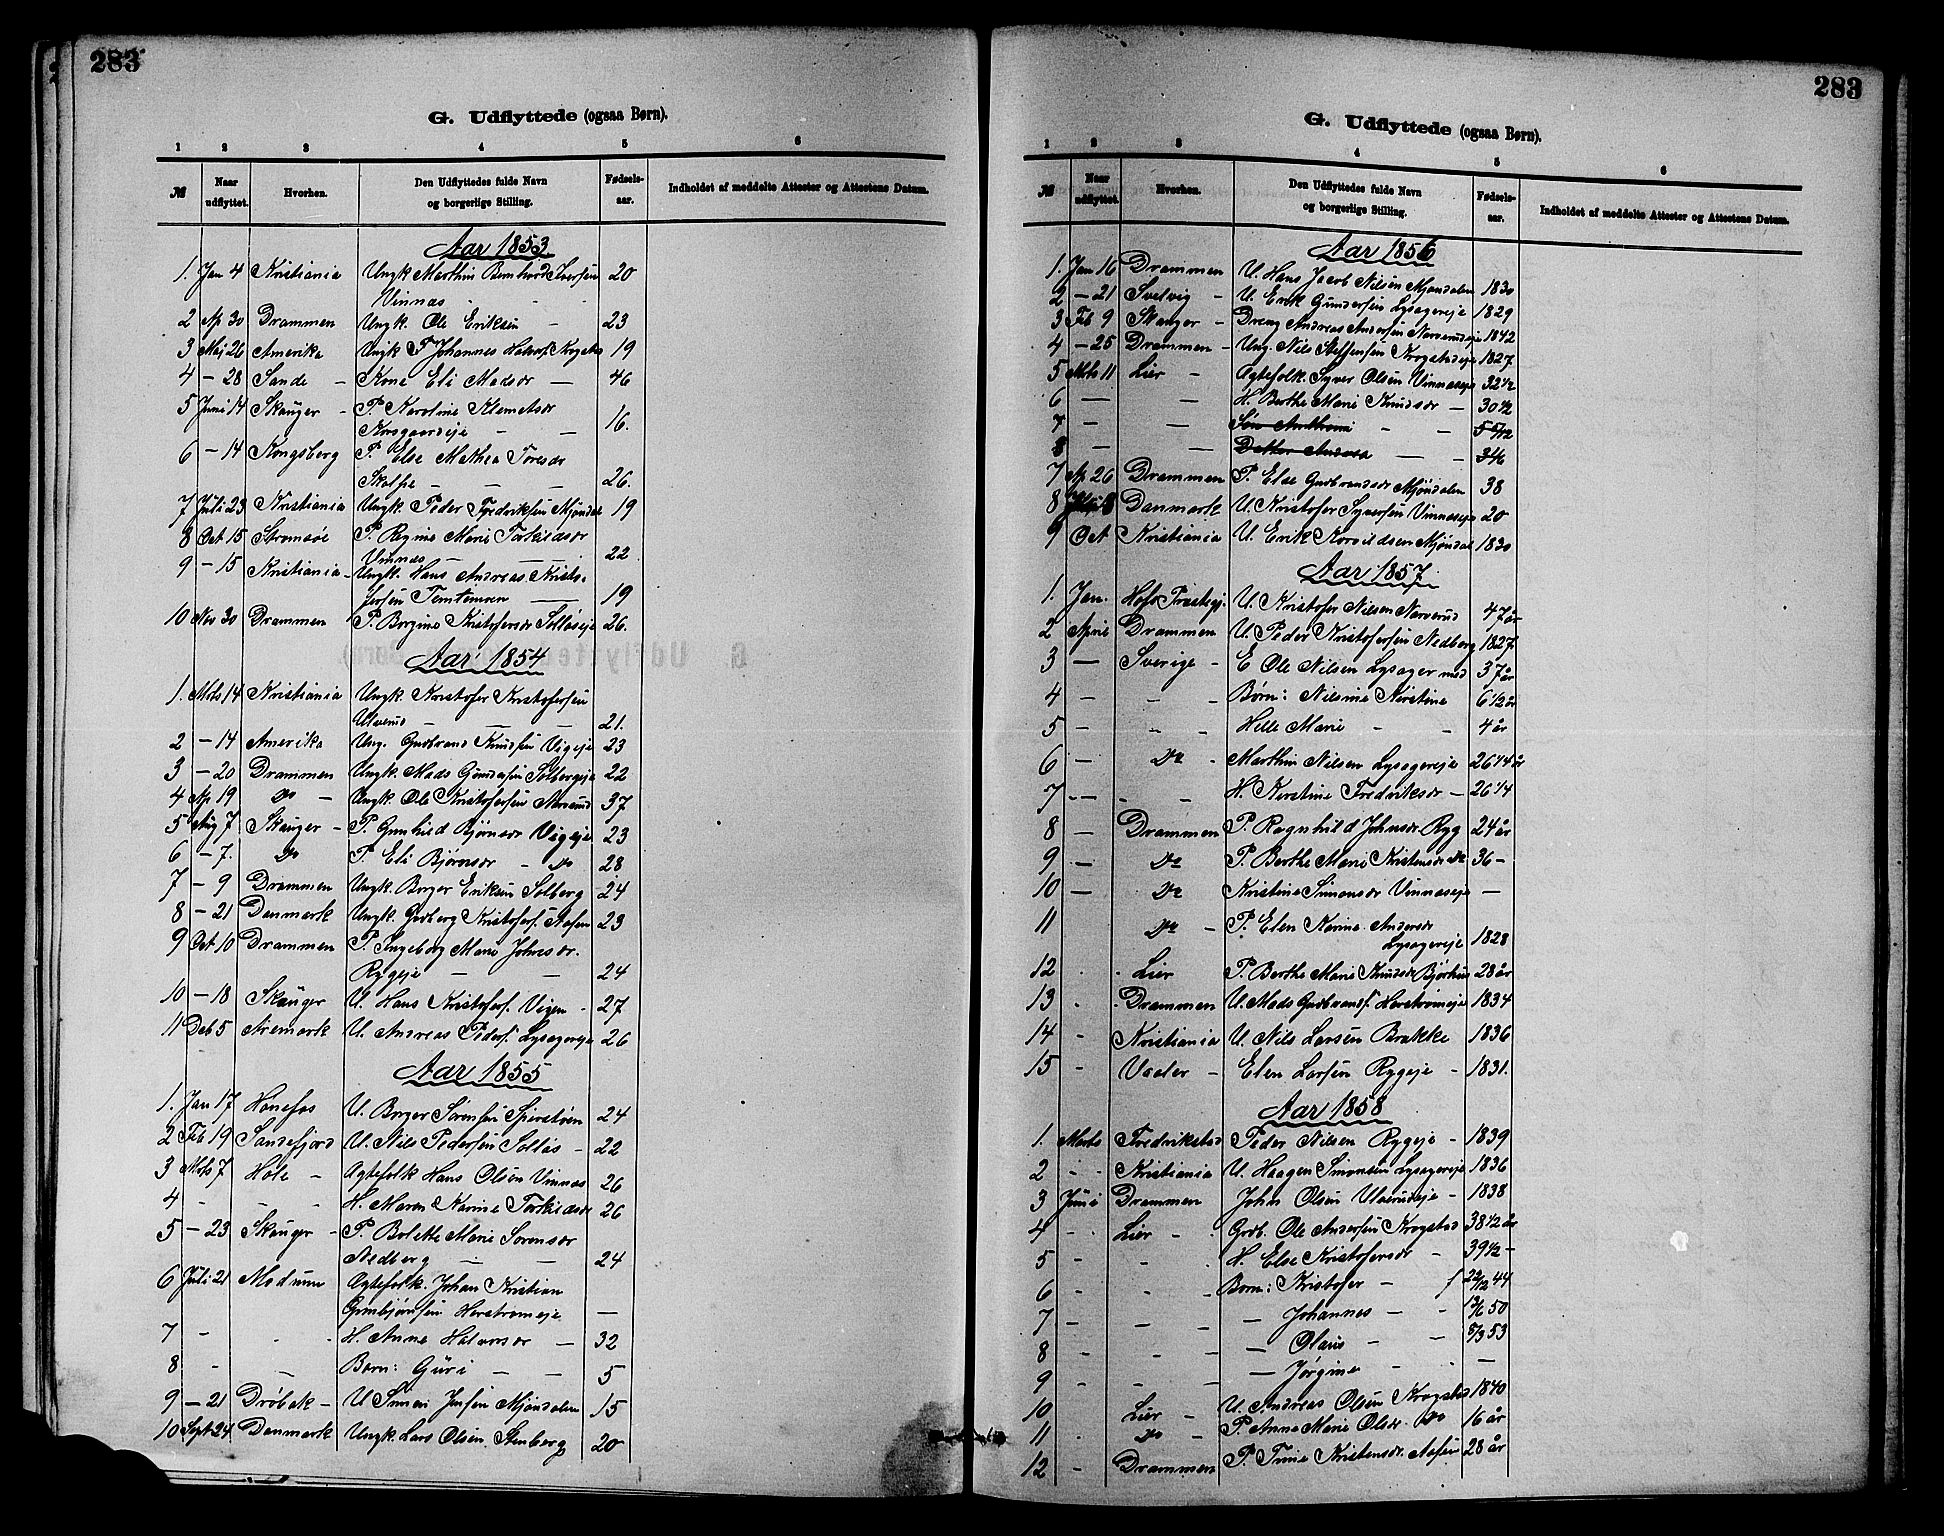 283
G. Udflyttede (ogsaa Børn).
1 2 3 4 5 6
№ Naar udflyttet. Hvorhen. Den Udflyttedes fulde Navn og borgerlige Stilling. Fødsels-aar. Indholdet af meddelte Attester og Attestens Datum.
Aar 1853
1. Jan 4 Kristiania Ungk Marthin Bernhard Iversen 20
Vinnas - - -
2 Ap 30 Drammen Ungk. Ole Eriksen - 23
3 Maj 26 Amerika Ungk Johannes Halvors. Krogstad 19
4 - 28 Sande - Kone Eli Madsdr - 46
5 Juni 14 Skauger - P. Karoline Klemetsdr
Korsgaardeje - - 16.
6 - 14 Kongsberg P. Else Mathea Toresdr
Skalpe - - - 26.
7 Juli 23 Kristiania Ungk Peder Fredriksen Mjøndal 19
8 Oct 15 Strømsøe P. Regine Marie Torkildsdr
Vinnas - - - 22
9 - 15 Kristiania - Ungk. Hans Andreas Kristo-
fersen Temtemoen - 19
10 Nov 30 Drammen P. Borgine Kristofersdr Sollaseje 26.
Aar 1854
1. Mrts 14 Kristiania Ungk Kristofer Kristofersen
Ulverud - - - 21.
2 - 14 Amerika Ung. Gudbrand Knudsen Vigeje 23
3 - 20 Drammen Ungk. Mads Gundersen Solbergeje 22
4 Ap 19 Do - Ungk. Ole Kristofersen 37
5 Aug 7 Skauger - P. Gunhild Bjørnsdr Vigeje 23
6 - 7. Do P. Eli Bjørnsdr - Do 28
7 - 9 Drammen Ungk. Borger Eriksen Solberg 24
8 - 21 Danmark Ungk. Gudberg Kristofers. Aasen 23
9 Oct 10 Drammen P. Ingeborg Marie Johnsdr.
Rygeje - - 24
10 - 18 Skauger U. Hans Kristofers. Vigen - 27
11 Deb 5 Aremark U. Andreas Peders. Lysagereje 26
Aar 1855
1. Jan 17 Hønefos U. Borger Sørensen Spirstøen 24
2 Feb 19 Sandefjord U. Nils Pedersen Sollas - 22
3 Mrts 7 Hole - Ægtefolk Hans Olsen Vinnas 26
4 - - - H. Maren Karine Torkildsdr 26
5 - 23 Skauger - P. Bolette Marie Sørensdr
Nedberg - - 24
6 Juli 21 Modum Ægtefolk. Johan Kristian
Gunbjørnsen Horstrømeje -
7 - - - H. Anne Halvorsdr - 32
8 - - Barn: Guri - - 5
9 - 21 Drøbak - U Simen Jensen Mjøndalen 15
10 Sept 24 Danmark Ungk. Lars Olsen Stenberg 20
283
G. Udflyttede (ogsaa Børn).
1 2 3 4 5 6
№ Naar udflyttet. Hvorhen. Den Udflyttedes fulde Navn og borgerlige Stilling. Fødsels-aar. Indholdet af meddelte Attester og Attestens Datum.
Aar 1856
1. Jan 16 Drammen U. Hans Jacob Nilsen Mjøndalen 1830
2 - 21 Svelvig - U. Erik Gundersen Lysagereje 1829
3 Feb 9 Skauger - Dreng Andreas Andersen Narverudeje 1842
4 - 25 Drammen - Ung. Nils Steffensen Krogstadeje 1827.
5 Mrts 11 Lier - Ægtefolk. Syver Olsen Vinnaseje 32 1/2
6 - - H. Berthe Marie Knudsdr - 30 1/2
7 - - Søn Anthoni - - 5 5/12
8 - - Datter Andrea - - 3/6
7 Ap 26 Drammen P. Else Gudbrandsdr Mjøndalen 38
8 Danmark U. Kristofer Syversen Vinnaseje 20
9 Oct Kristiania U. Erik Korsvoldsen Mjøndal 1830
Aar 1857
1. Jan. Hofs Prestegj. U. Kristofer Nilsen Narverud 47 år
2 April Drammen U. Peder Kristofersen Nedberg 1827.
3 - Sverige - E Ole Nilsen Lysager med 37 år
4 - - - Børn: Nilsine Kirstine 6 1/2 år
5 - - - Helle Marie - - 4 år
6 - Do - Marthin Nilsen Lysagereje 26 1/4 år
7 - - - H. Kirstine Fredriksdr - 26 1/4
8 - Drammen P. Ragnhild Johnsdr. Ryg 24 år
9 - Do P. Berthe Marie Kristensdr Do 36 -
10 - Do Kristine Simonsdr Vinnaseje -
11 Do - P. Elen Karine Andersdr
Lysagereje 1828
12 - Lier P. Berthe Marie Knudsdr Bjørkun 28 år
13 - Drammen U. Mads Gudbrands. Horstrømeje 1834
14 - Kristiania U. Nils Larsen Brakke 1836
15 - Vaaler - Elen Larsen Rygeje - 1831.
Aar 1858
1. Marts Fredrikstad Peder Nilsen Rygeje - 1839
2 - - Kristiania U. Haagen Simonsen Lysagereje 1836
3 Juni Drammen John Olsen Ulverudeje - 1838
4 - - Lier - - Grdb. Ole Andersen Krogstad 38 1/2 år
5 - - - H. Else Kristofersdr - 39 1/2 -
6 - - - Børn: Kristofer - f 22/12 44
7 - - - - Johannes - - 13/6 50
8 - - - - Olaus - - 5/3 53
9 - - - - Jørgine - - -
10 Lier - U. Andreas Olsen Krogstad 1840
11 - Do - P. Anne Marie Olsdr. Do 16 år
12 - Drammen P. Trine Kristensdr. Aasen 28 år